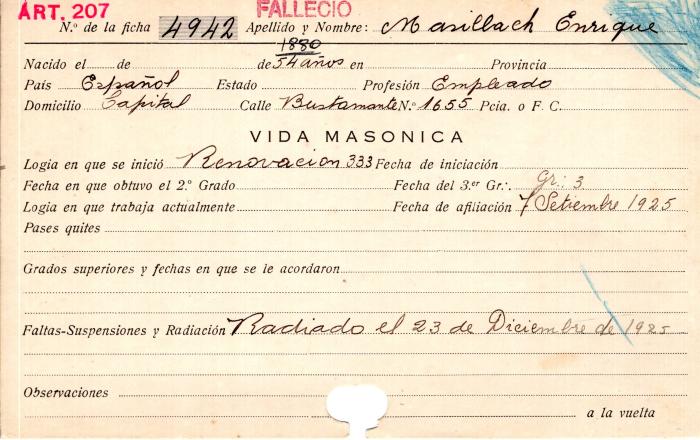 ART. 207 FALLECIO
N.º de la ficha 4942 Apellido y Nombre: Masillach Enrique
1880
Nacido el de de 54 años en Provincia
País Español Estado Profesión Empleado
Domicilio Capital Calle Bustamante N.º 1655 Pcia. o F. C.
VIDA MASONICA
Logia en que se inició Renovacion 333 Fecha de iniciación
Fecha en que obtuvo el 2.º Grado Fecha del 3.er Gr∴ Gr∴ 3
Logia en que trabaja actualmente Fecha de afiliación 7 Setiembre 1925
Pases quites
Grados superiores y fechas en que se le acordaron
Faltas-Suspensiones y Radiación Radiado el 23 de Diciembre de 1925
Observaciones
a la vuelta